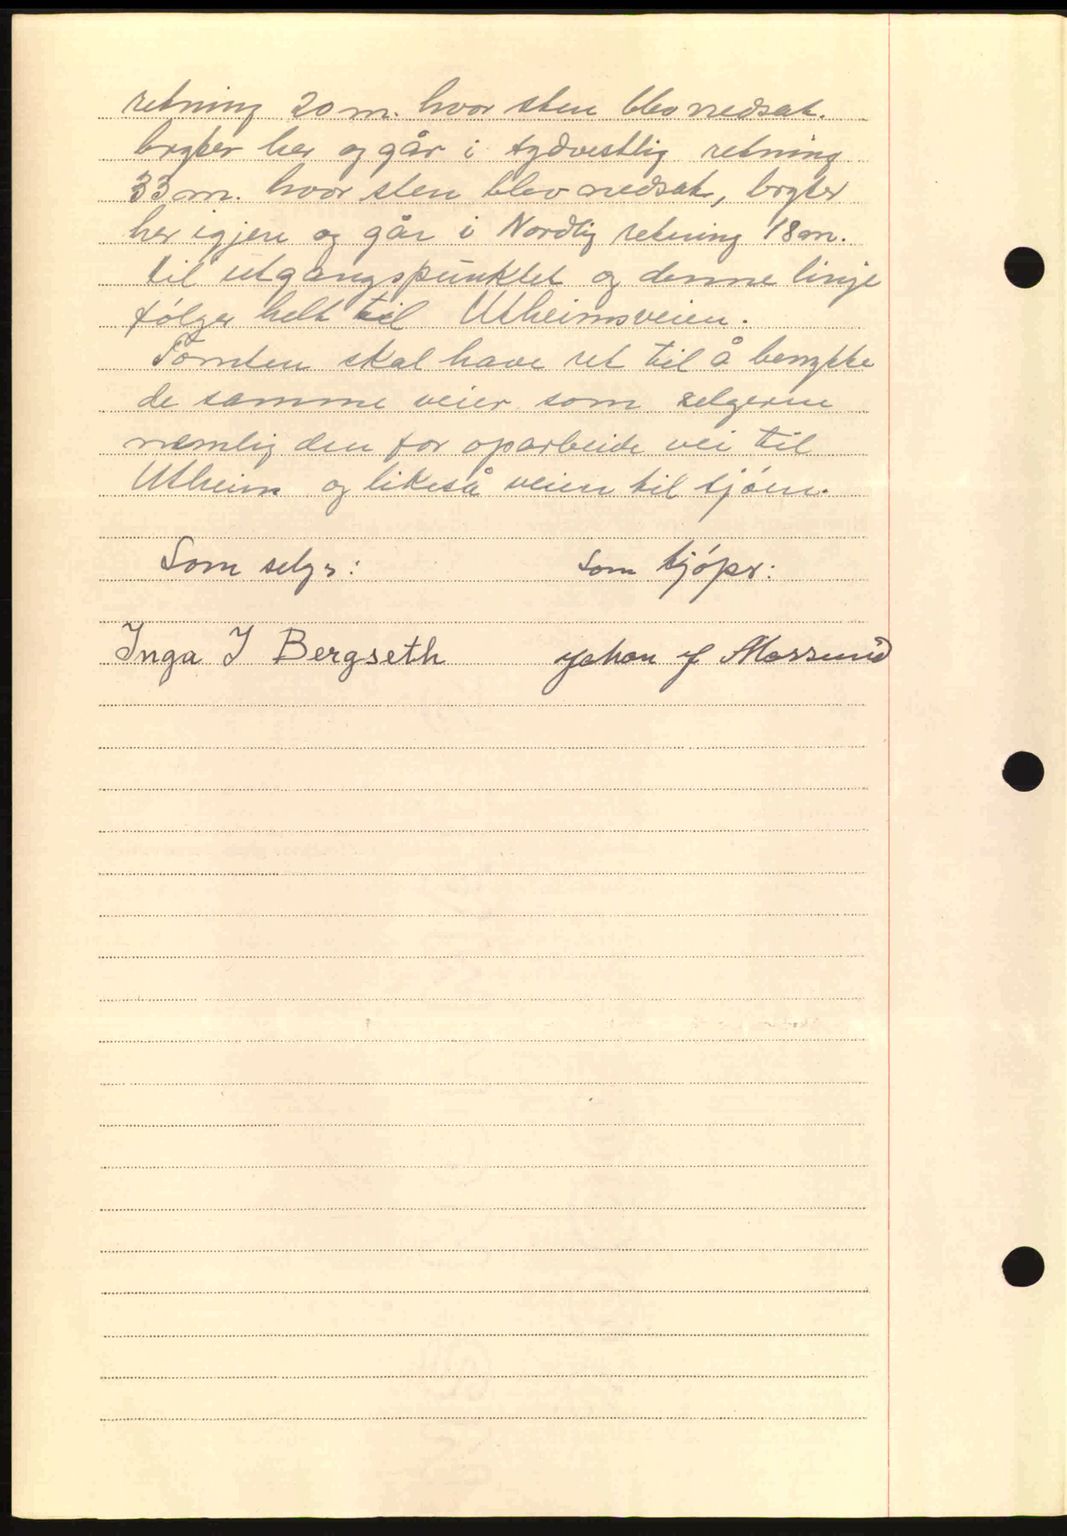 retning 20 m. hvor sten blev nedsat.
bryter her og går i sydvestlig retning
33 m. hvor sten blev nedsat, bryter
her igjen og går i Nordlig retning 18 m.
til utgangspunktet og denne linje
følger helt til Utheimsveien.
Tomten skal have ret til å benytte
de samme veier som selgeren
nemlig den før oparbeide vei til
Utheim og likeså veien til sjøen.
Som selgr: Som kjøpr:
Inga J Bergseth Johan J